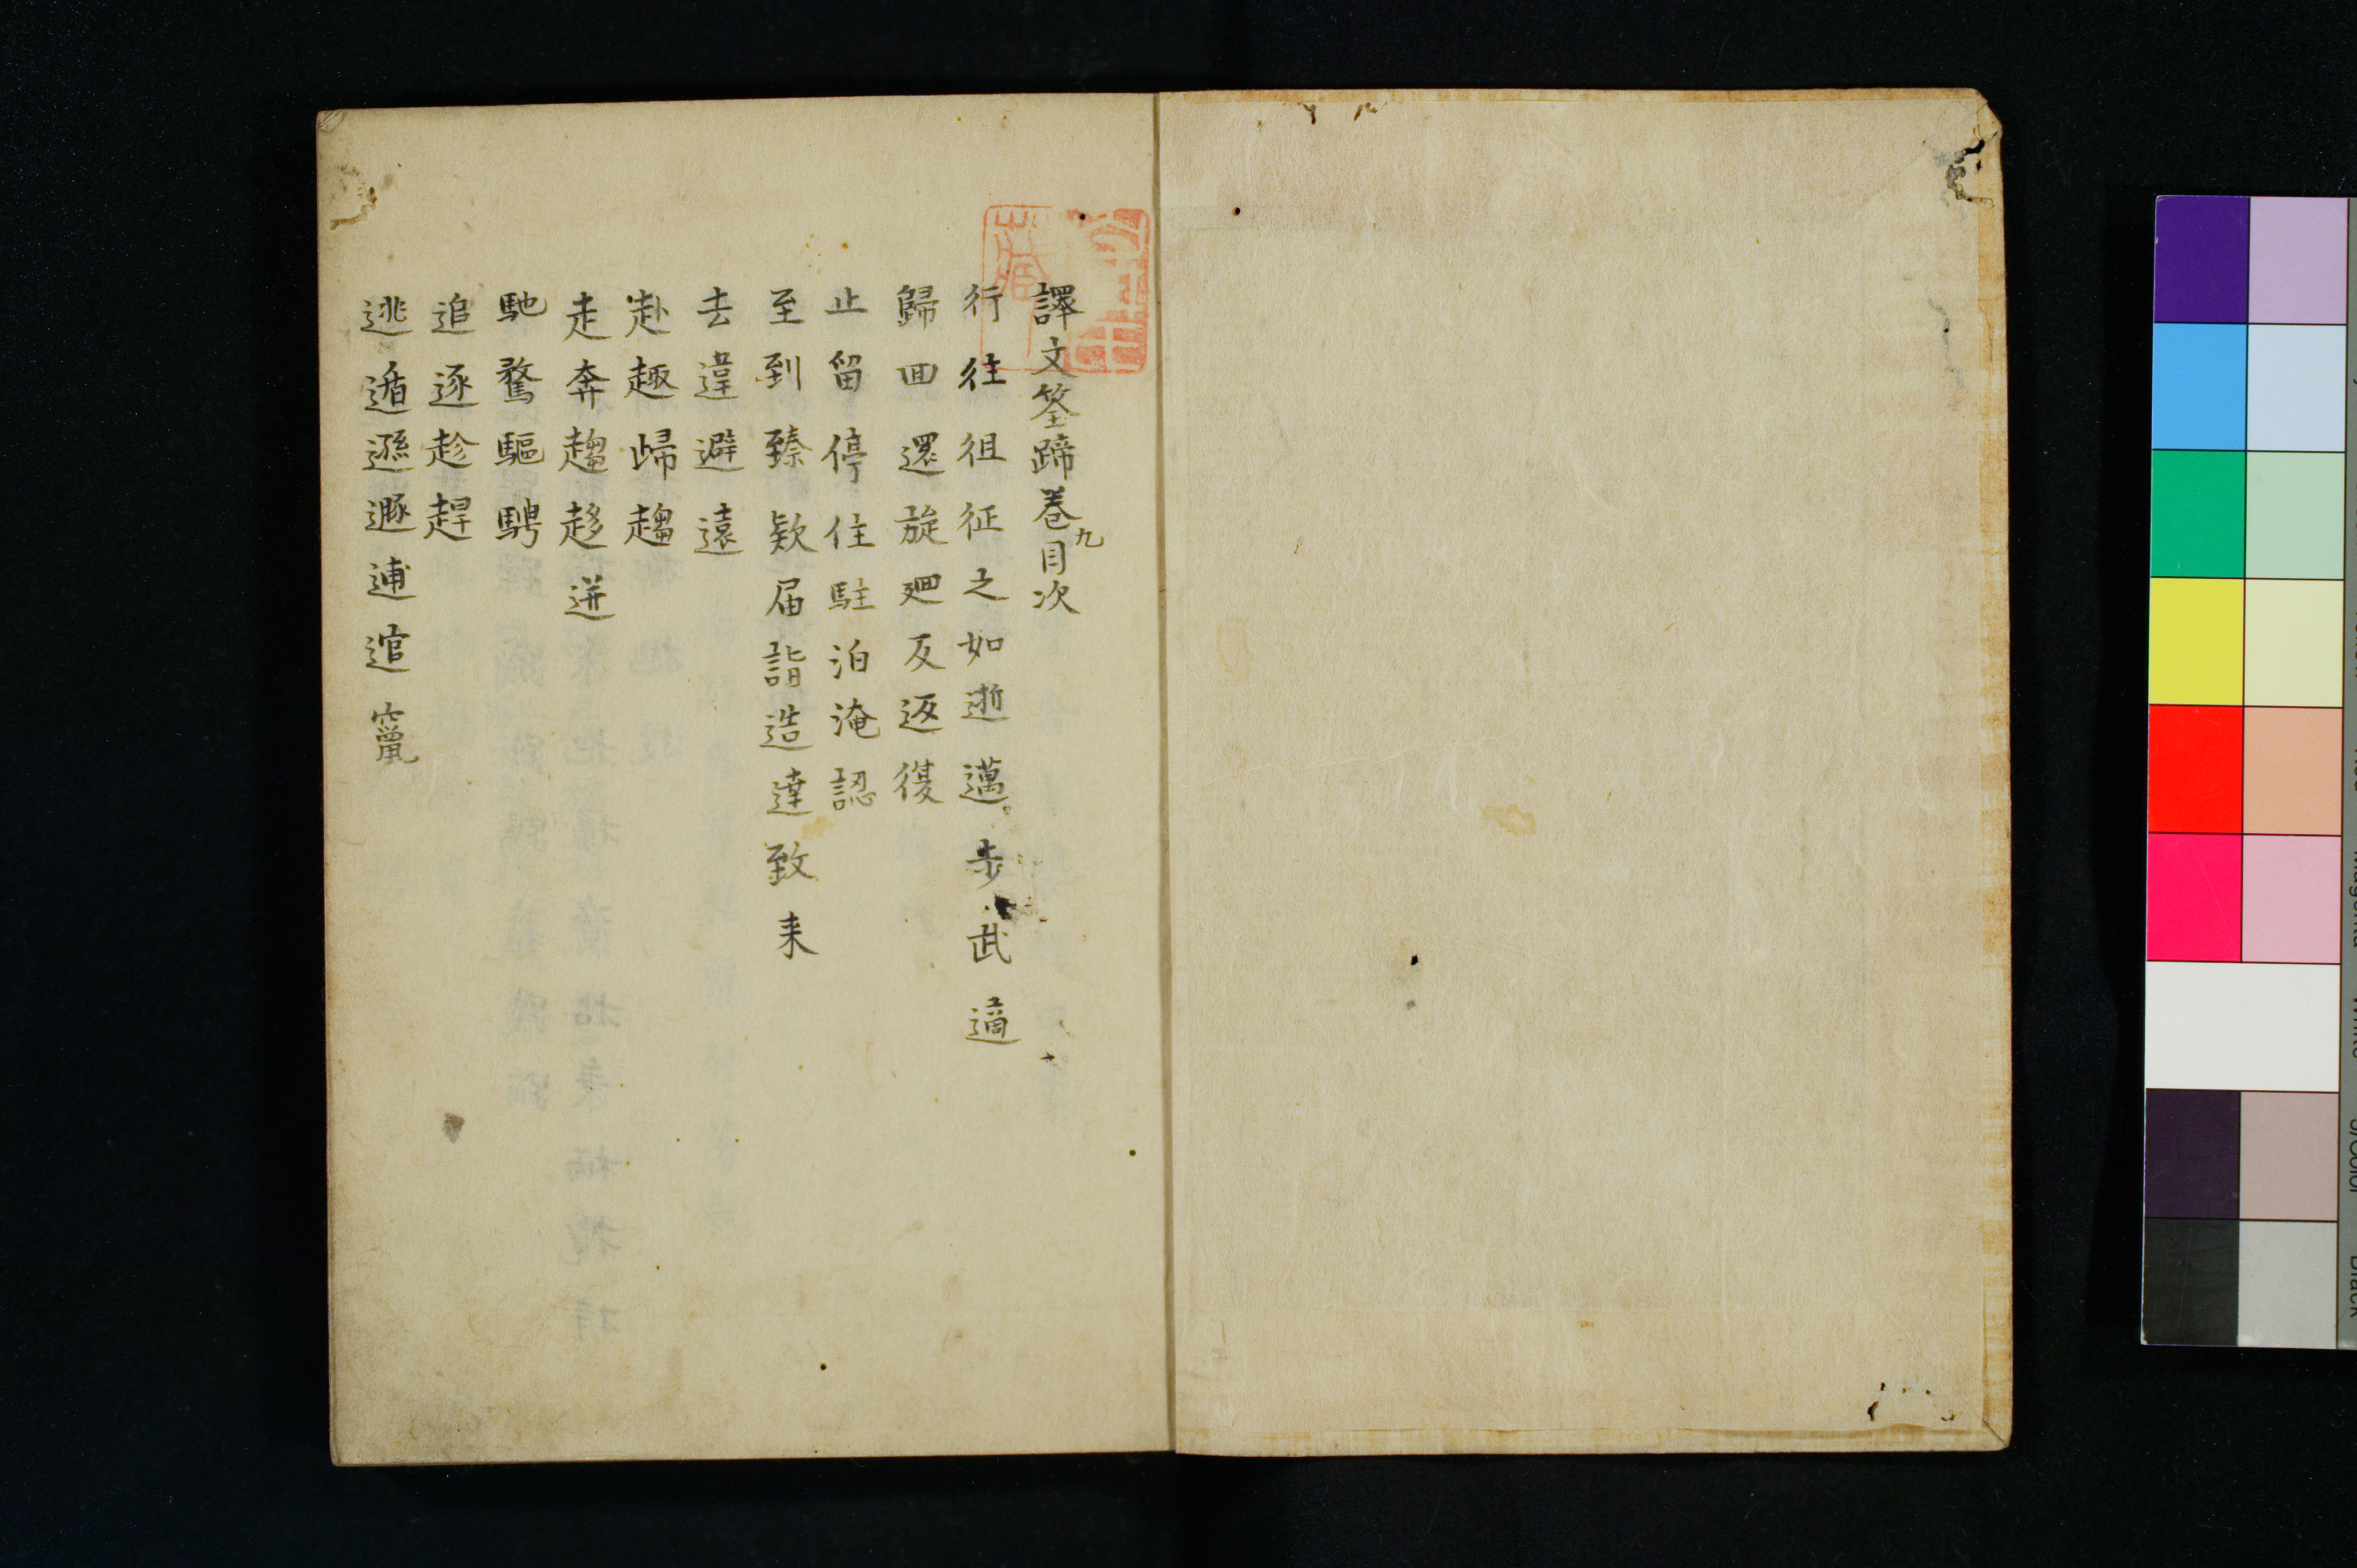 譯文筌蹄巻九目次
行往徂征之如逝邁步武適
歸回還旋廻反返復
止留停住駐泊淹認
至到臻欵届詣造達致来
去違避遠
赴趣歸趨
走奔趨趍迸
馳騖驅騁
追逐趁趕
逃遁遜遯逋逭竄
藏